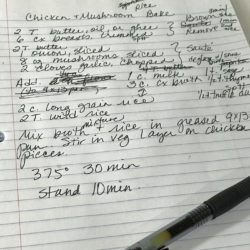 Rice
Chicken + Mushroom Bake
2 T butter, oil or ghee
6 cx breasts,
Brown
Remove
2 T. butter
onion, sliced
8 oz mushrooms, sliced
2 cloves garlic, chopped
Sauté
Add
1 c. milk
3 c. cx broth
2 c. long grain rice
2 T. wild rice
mixture
Mix broth + rice in greased 9x13
pan. Stir in veg. Layer on chicken
pieces.
375° 30 min
stand 10 min